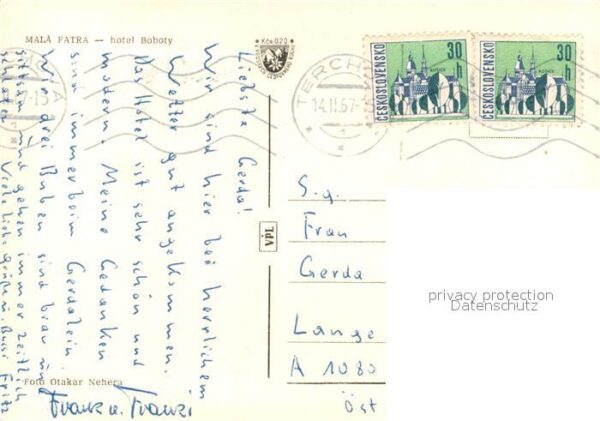 MALÁ FATRA — hotel Boboty
Kčs 0,20
TERCHOVÁ
14.II.67-15
ČESKOSLOVENSKO
30 h
ČESKOSLOVENSKO
30 h
Liebste Gerda!
Wir sind hier bei herrlichem
Wetter gut angekommen.
Das Hotel ist sehr schön und
modern. Meine Gedanken
sind immer beim Gerdalein.
Wir drei Buben sind brav und
sind gehen immer zeitlich
Viele liebe Grüße u. Bussi Fritz
Franz u. Franzi
VPL
S.g.
Frau
Gerda
Lange
A 1080
Öst
privacy protection
Datenschutz
Foto Otakar Nehera